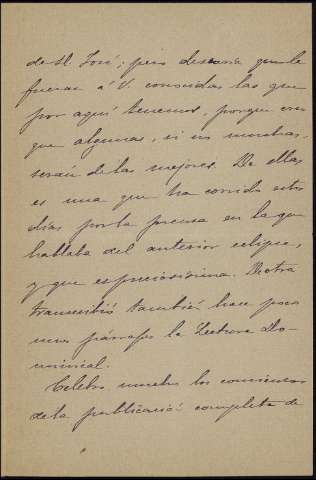 de D. José; pero desearía que le
fueran á V. conocidas las que
por aquí tenemos, porque creo
que algunas, si no muchas,
serán de las mejores. De ellas
es una que ha corrido estos
días por la prensa en la que
hablaba del anterior eclipse,
y que es preciosísima. De otra
transcribió también hace poco
unos párrafos la Lectura Do-
minical.
Celebro mucho los comienzos
de la publicació completa de